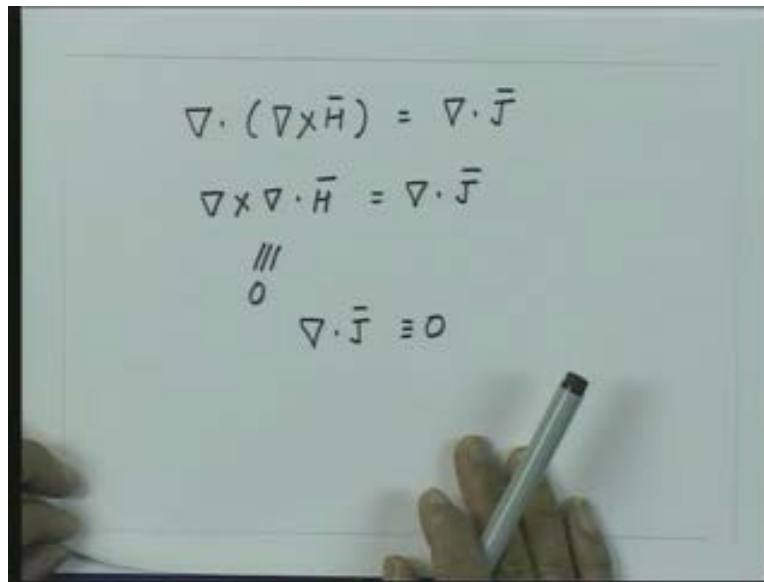 ∇ · (∇ × H̄) = ∇ · J̄
∇ × ∇ · H̄ = ∇ · J̄
|||
0
∇ · J̄ ≡ 0